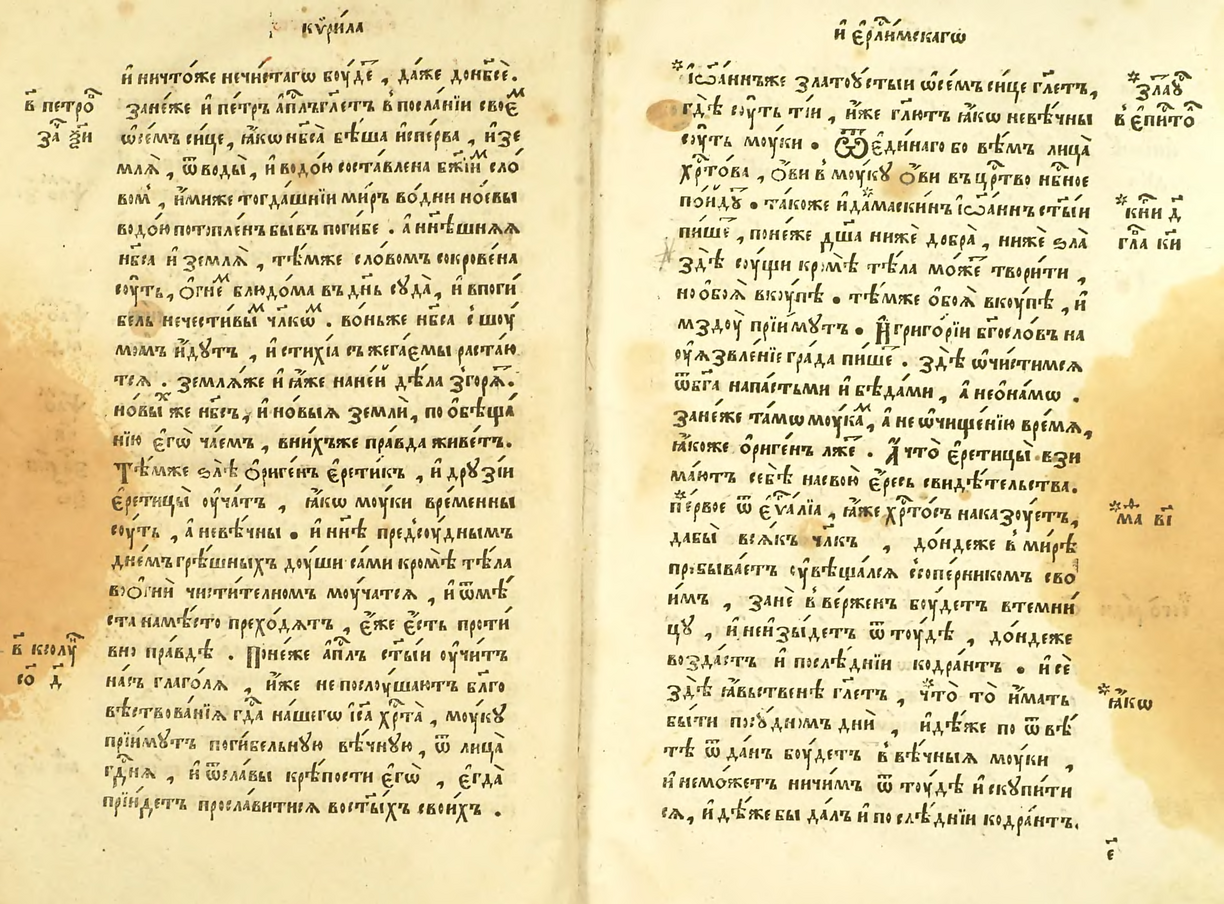 кѷри́ла
и҆ ничто́же нечи́стагѡ бо́ꙋде , да́же донб҃се̑.
в҃ петро
занѐже и҆ пе́тръ а҆п҃лъ гл҃етъ в посла́нїи свое҆м
за ѯ҃и
ѡ҆се́мъ си́це, ꙗ҆́кѡ нб҃са̀ бѣ́ша и҆спе́рва , и҆ зе
млѧ̀ , ѿ воды̀ , и҆ водо́ю соста́влена бж҃їим сло
вом , и҆́миже тогда́шнїи ми́ръ во́дни но́евы
водо́ю пото́пленъ бы́въ поги́бе . а҆ нн҃ѣшнѧѧ
нб҃са и҆ землѧ̀ , тѣ́мже сло́вомъ сокрове́на
сꙋ́ть, о҆гне́м блюдо́ма въ дн҃ь сꙋда̀ , и҆ в поги
бель нечести́вым чл҃кѡм . во́ньже нб҃са с шоу
мом и҆́дꙋтъ , и҆ стихі́а съжега́емы раста́ю
тсѧ . землѧ́же и҆ ꙗ҆́же нане́й дѣ́ла згорѧ.
но́вых же нб҃съ, и҆ но́выѧ землѝ, по ѻ҆бѣща́
нїю є҆гѡ̀ ча́емъ , в ни́хъже пра́вда живе́тъ.
Тѣ́мже ѕлѣ̀ ѻ҆риге́нъ є҆рети́къ , и҆ дрꙋзїи
є҆ретицы̀ оу҆ча́тъ , ꙗ҆́кѡ мо́ꙋки вре́менны
со́ꙋть , а҆ неве́чны . и҆ нн҃ѣ предсо́ꙋднымъ
дне́мъ грѣ́шныхъ до́ꙋши са́ми кро́мѣ тѣ́ла
во ѻ҆гнѝ чисти́телномъ мо́ꙋчатсѧ , и҆ ѿ мѣ́
ста на мѣ́сто прехо́дѧтъ , є҆́же є҆́сть проти
вно пра́вдѣ . Поне́же а҆п҃лъ ст҃ы́и оу҆чи́тъ
в҃ ксолꙋ
на́съ глаго́лѧ , и҆́же не послоушаютъ бл҃го
со д҃
вѣствова́нїѧ гд҃а на́шегѡ і҆с҃а хрт҃а̀ , мо́ꙋкꙋ
прїи́мꙋтъ поги́белънꙋю вѣ́чнꙋю , ѿ лица̀
гд҃нѧ , и҆ ѿ сла́вы крѣ́пости є҆гѡ̀ , є҆гда̀
прїи́детъ просла́витисѧ во ст҃ы́хъ свои́хъ .
и҆ є҆рл҃и́мскагѡ
і҆ѡа́ннъже златоꙋ́стыи ѡ҆се́мъ си́це гл҃етъ,
злаꙋ
гдѣ̀ со́ꙋть ті́и , и҆́же гл҃ютъ ꙗ҆́кѡ неве́чны
в є҆пи́то
со́ꙋть мо́ꙋки . Ѿ є҆ди́наго бо вѣ́мъ лица̀
хрт҃о́ва , ѻ҆́ви в мо́ꙋкꙋ ѻ҆́ви въ црт҃во нб҃ное
по́идꙋ . та́коже и҆ дама́скинъ і҆ѡа́ннъ ст҃ы́и
кни д҃
пи́ше , поне́же дш҃а нижѐ добра̀ , нижѐ ѕла̀
гл҃а ки
здѣ̀ со́ꙋщи кро́мѣ тѣ́ла мо́же твори́ти ,
но ѻ҆боѧ̀ вко́ꙋпѣ . тѣ́мже ѻ҆боѧ̀ вко́ꙋпѣ , и҆
мздоꙋ̀ прїи́мꙋтъ . И҆ григо́рїи бг҃осло́въ на
оу҆ѧзвле́нїе гра́да пи́ше . здѣ̀ ѡ҆чи́стимсѧ
ѿ бг҃а напа́стьми и҆ бѣ́дами , а҆ нео́намѡ .
зане́же та́мѡ мо́ꙋкам, а҆ не ѡ҆чище́нїю вре́мѧ,
ꙗ҆́коже ѻ҆риге́нъ лже . А҆ что̀ є҆ретицы̀ взи
ма́ютъ себѣ̀ на свою̀ є҆́ресь свидѣ́тельства.
пе́рвое ѿ є҆ѵ҃а́лїа , ꙗ҆́же хрт҃о́съ наказо́ꙋетъ,
ма в҃і
дабы̀ всѧ́къ чл҃къ , до́ндеже в ми́рѣ
пребыва́етъ оу҆вѣща́лсѧ ссопе́рникомъ сво
и́мъ , занѐ в ве́рженъ бо́ꙋдетъ в темни́
цꙋ , и҆ неи҆зы́детъ ѿ то́ꙋдѣ , до́ндеже
возда́стъ и҆ послѣ́днїи кодра́нтъ . и҆ сѐ
здѣ̀ ꙗ҆́вьственѣ гл҃етъ , что̀ то̀ и҆́мать
ꙗ҆́кѡ
бы́ти по сꙋ́дномъ днѝ , и҆дѣ́же по ѿвѣ́
тѣ ѿ да́нъ бо́ꙋдетъ в вѣ́чныѧ мо́ꙋки ,
и҆ немо́жетъ ничи́мъ ѿ то́ꙋдѣ и҆скꙋпи́ти
сѧ, и҆ дѣ́же бы да́лъ и҆ послѣ́днїи кодра́нтъ.
є҃